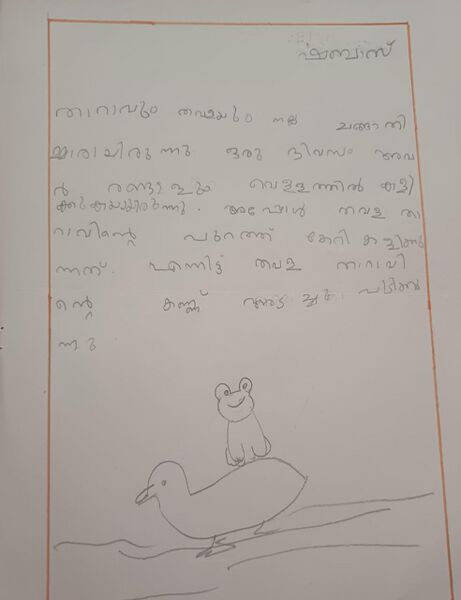 ഷബാസ്
താറാവും തവളയും നല്ല ചങ്ങാതി
മ്മാരായിരുന്നു ഒരു ദിവസം അവ
ർ രണ്ടാളും വെള്ളത്തിൽ കളി
ക്കുകയായിരുന്നു. അപ്പോൾ തവള താ
റാവിന്റെ പുറത്ത് കേറി കളിക്കു
ന്നത്. എന്നിട്ട് തവള താറാവി
ന്റെ കണ്ണ് പിടിക്കു
ന്നു